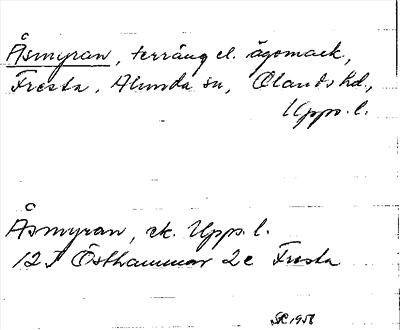 Åsmyran, terräng el. ägomark.,
Fresta, Alunda sn, Olands hd.,
Upps. l.
Åsmyran, ek. Upps. l.
12 I Östhammar 2c Fresta
1956